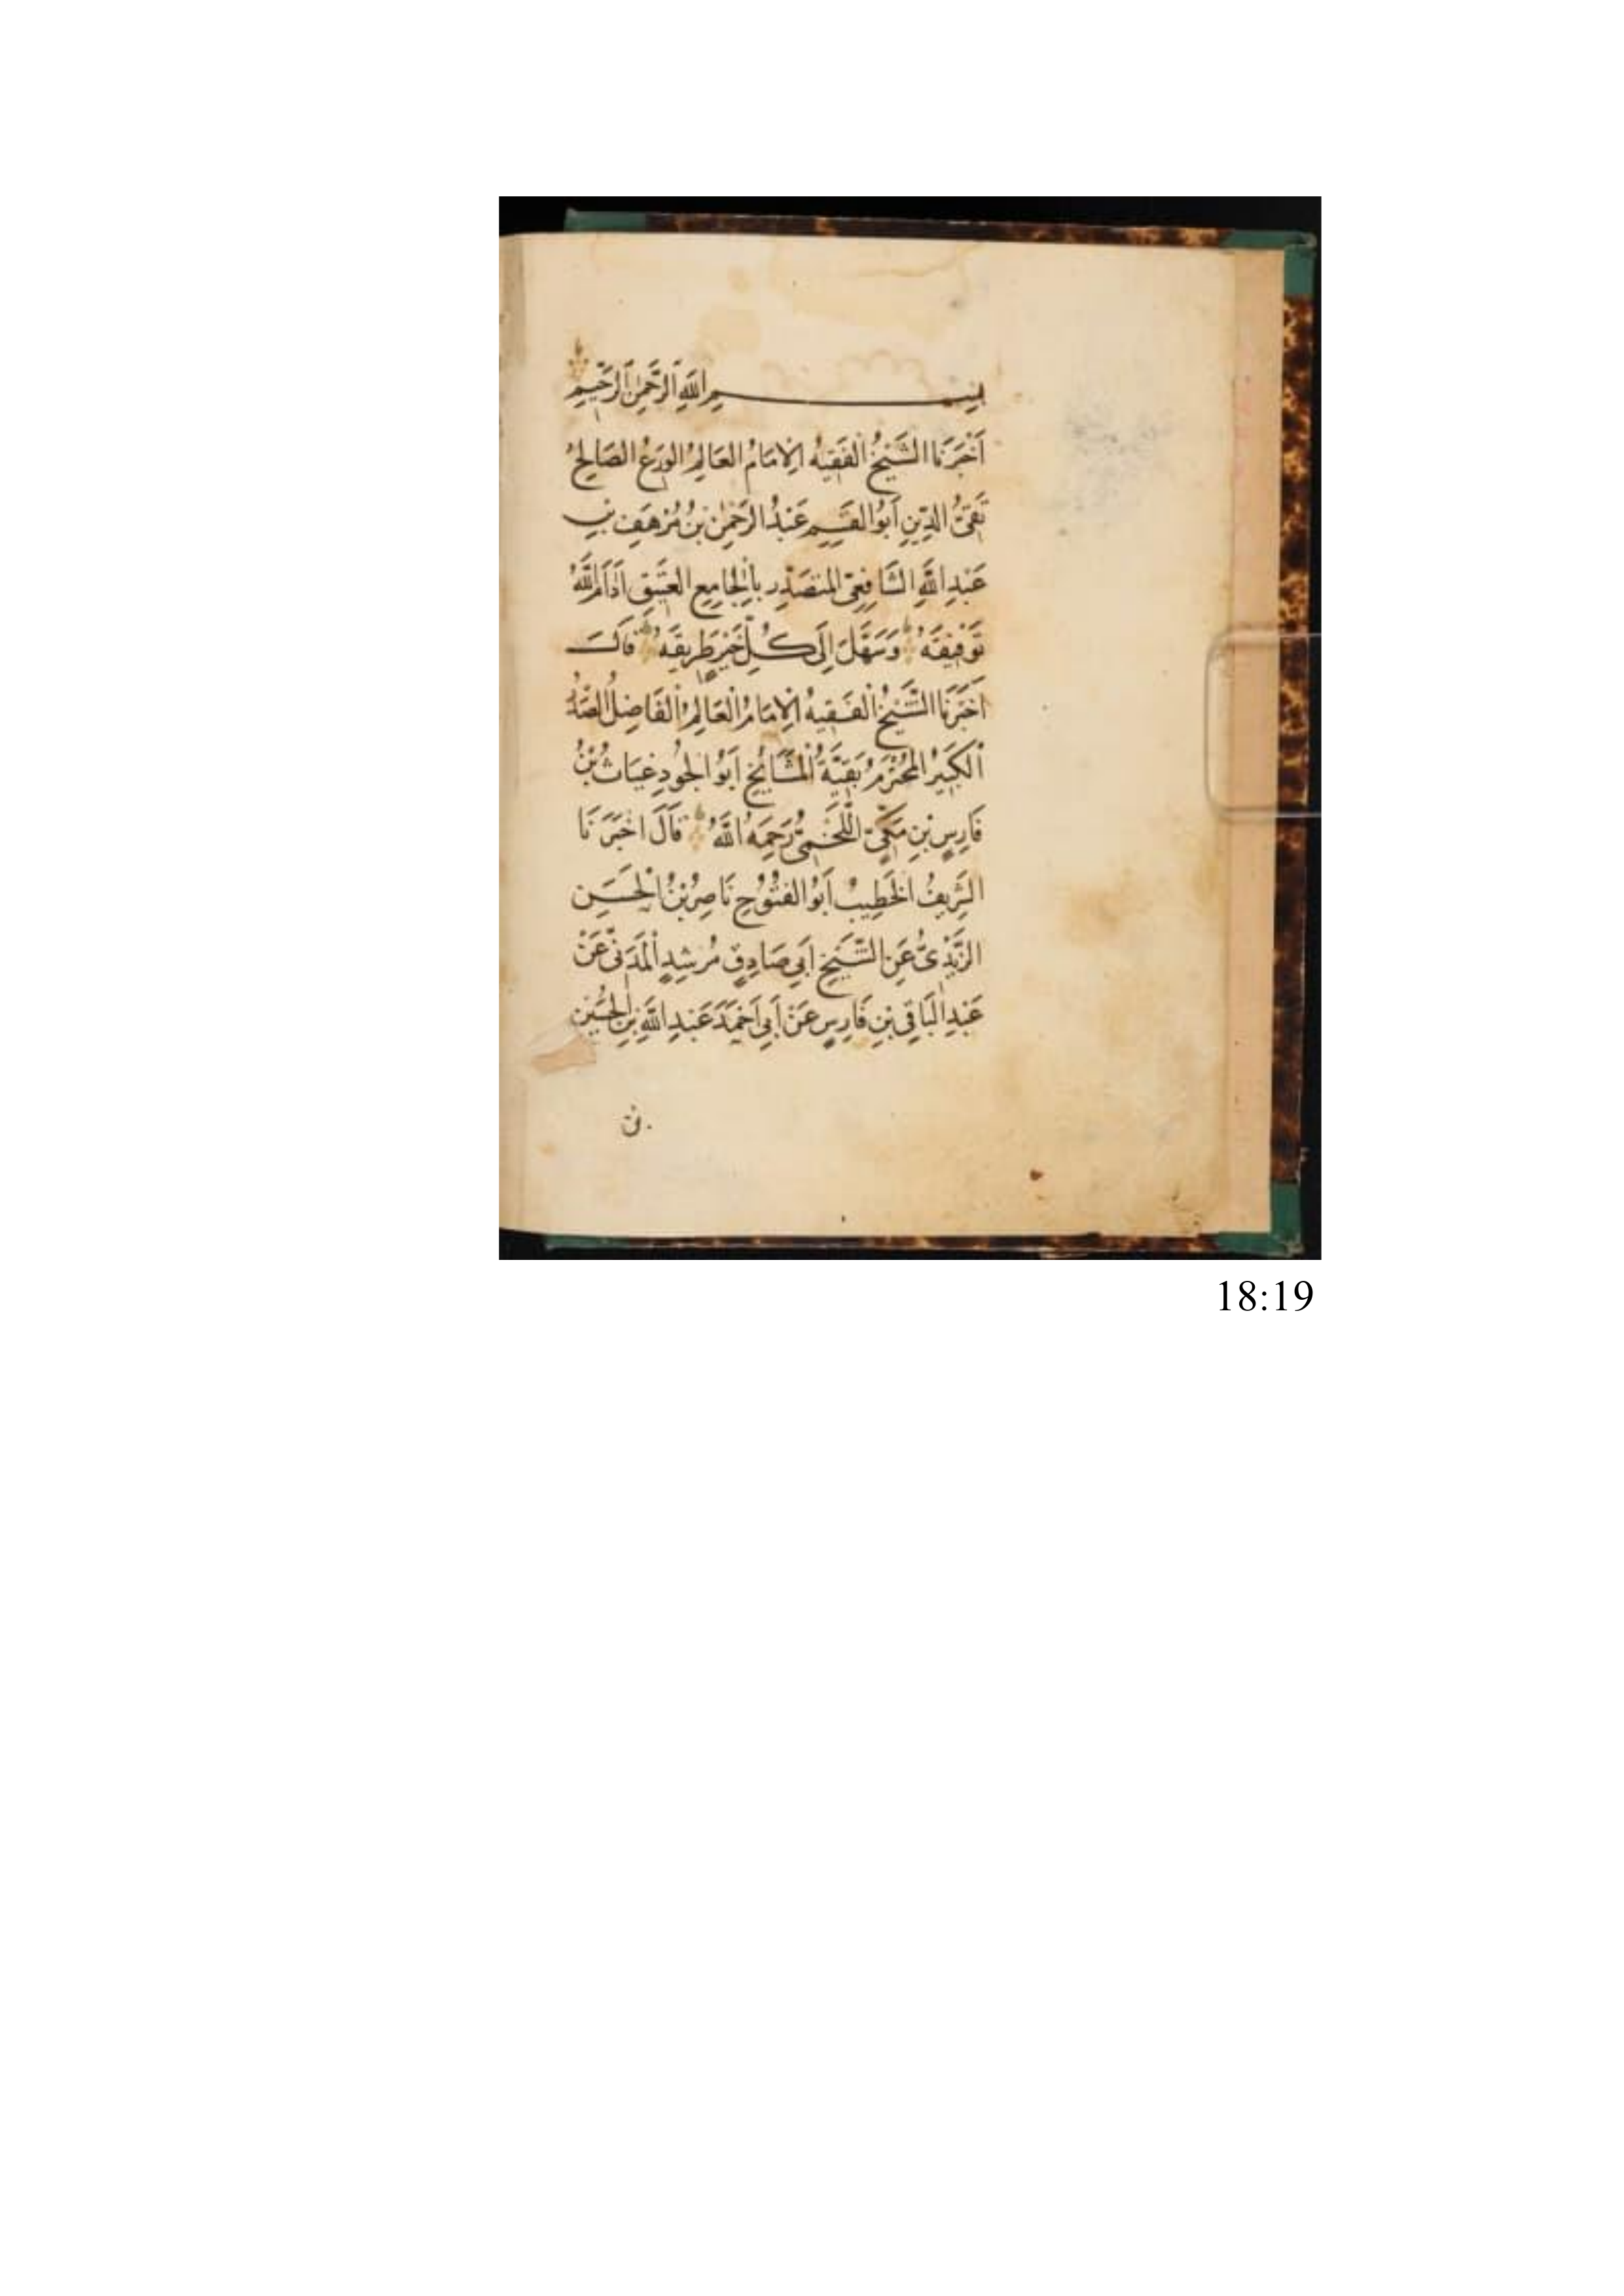 بِسْمِ اللَّهِ الرَّحْمَنِ الرَّحِيمِ
أَخْبَرَنَا الشَّيْخُ الْفَقِيهُ الْإِمَامُ الْعَالِمُ الْوَرِعُ الصَّالِحُ
تَقِيُّ الدِّينِ أَبُو الْقَسِمِ عَبْدُ الرَّحْمَنِ بْنُ مُرْهَفِ بْنِ
عَبْدِ اللَّهِ الشَّافِعِيُّ الْمُتَصَدِّرِ بِالْجَامِعِ الْعَتِيقِ أَدَامَ اللَّهُ
تَوْفِيقَهُ وَسَهَّلَ إِلَى كُلِّ خَيْرٍ طَرِيقَهُ قَالَ
أَخْبَرَنَا الشَّيْخُ الْفَقِيهُ الْإِمَامُ الْعَالِمُ الْفَاضِلُ
الْكَبِيرُ الْمُحْتَرَمُ بَقِيَّةُ الْمَشَائِخِ أَبُو الْجُودِ غِيَاثُ بْنُ
فَارِسِ بْنِ مَكِّيٍّ اللَّخْمِيُّ رَحِمَهُ اللَّهُ قَالَ أَخْبَرَنَا
الشَّرِيفُ الْخَطِيبُ أَبُو الْفُتُوحِ نَاصِرُ بْنُ الْحَسَنِ
الزَّيْدِيُّ عَنِ الشَّيْخِ أَبِي صَادِقٍ مُرْشِدٍ الْمَدَنِيِّ عَنْ
عَبْدِ الْبَاقِي بْنِ فَارِسٍ عَنْ أَبِي أَحْمَدَ عَبْدِ اللَّهِ بْنِ الْحُسَيْنِ
18:19